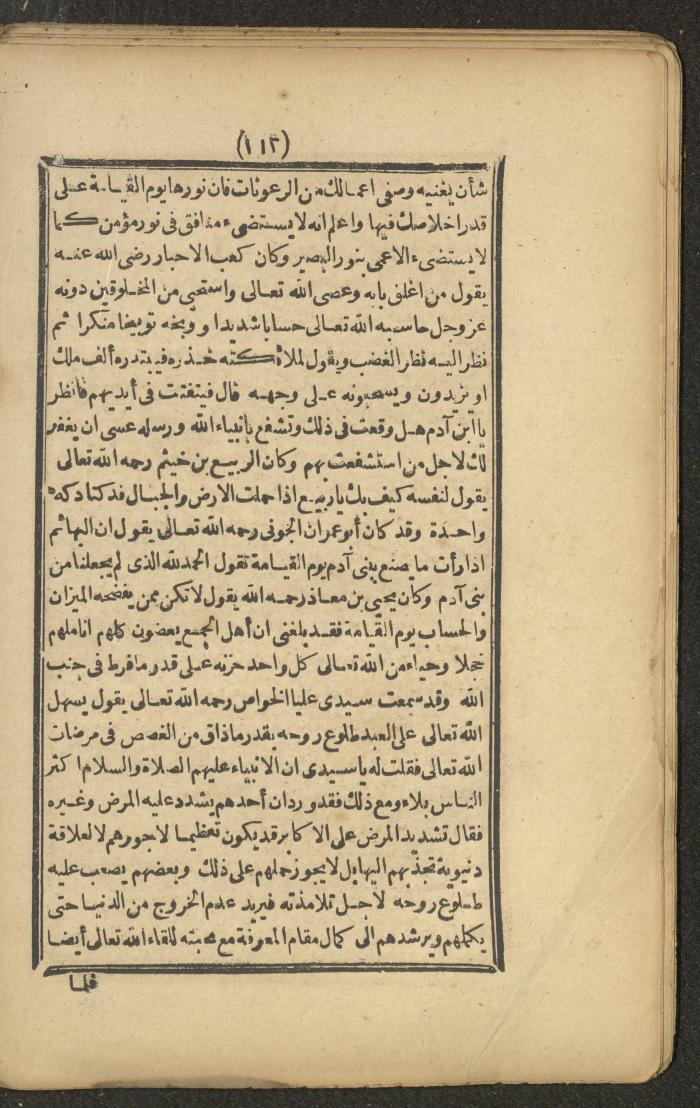 (١١٢)
شأن يغنيه وصفى اعمالك من الرعونات فان نورها يوم القيامة على
قدر اخلاصك فيها واعلم انه لا يستضىء منافق فى نور مؤمن كما
لا يستضىء الاعمى بنور البصير وكان كعب الاحبار رضى الله عنه
يقول من اغلق بابه وعصى الله تعالى واستحى من المخلوقين دونه
عز وجل حاسبه الله تعالى حسابا شديدا ووبخه توبيخا منكرا ثم
نظر اليه نظر الغضب ويقول لملائكته خذره فيبتدره ألف ملك
او يزيدون ويسحبونه على وجهه قال فيتفتت فى أيديهم فانظر
يا ابن آدم هل وقعت فى ذلك وتشفع بانبياء الله ورسله عسى ان يغفر
لك لاجل من استشفعت بهم وكان الربيع بن خيثم رحمه الله تعالى
يقول لنفسه كيف بك يا ربيع اذا حملت الارض والجبال فدكتا دكة
واحدة وقد كان أبو عمران الجونى رحمه الله تعالى يقول ان البهائم
اذا رأت ما يصنع ببنى آدم يوم القيامة تقول الحمد لله الذى لم يجعلنا من
بنى آدم وكان يحيى بن معاذ رحمه الله يقول لا تكن ممن يفضحه الميزان
والحساب يوم القيامة فقد بلغنى ان أهل الجمع يعضون كلهم اناملهم
خجلا وحياء من الله تعالى كل واحد حزنه على قدر ما فرط فى جنب
الله وقد سمعت سيدى عليا الخواص رحمه الله تعالى يقول يسهل
الله تعالى على العبد طلوع روحه بقدر ما ذاق من الغصص فى مرضات
الله تعالى فقلت له يا سيدى ان الانبياء عليهم الصلاة والسلام اكثر
الناس بلاء ومع ذلك فقد ورد ان أحدهم يشدد عليه المرض وغيره
فقال تشديد المرض على الاكابر قد يكون تعظيما لاجورهم لا لعلاقة
دنيوية تجذبهم اليها بل لا يجوز حملهم على ذلك وبعضهم يصعب عليه
طلوع روحه لاجل تلامذته فيريد عدم الخروج من الدنيا حتى
يكملهم ويرشدهم الى كمال مقام المعرفة مع محبته للقاء الله تعالى أيضا
فلما